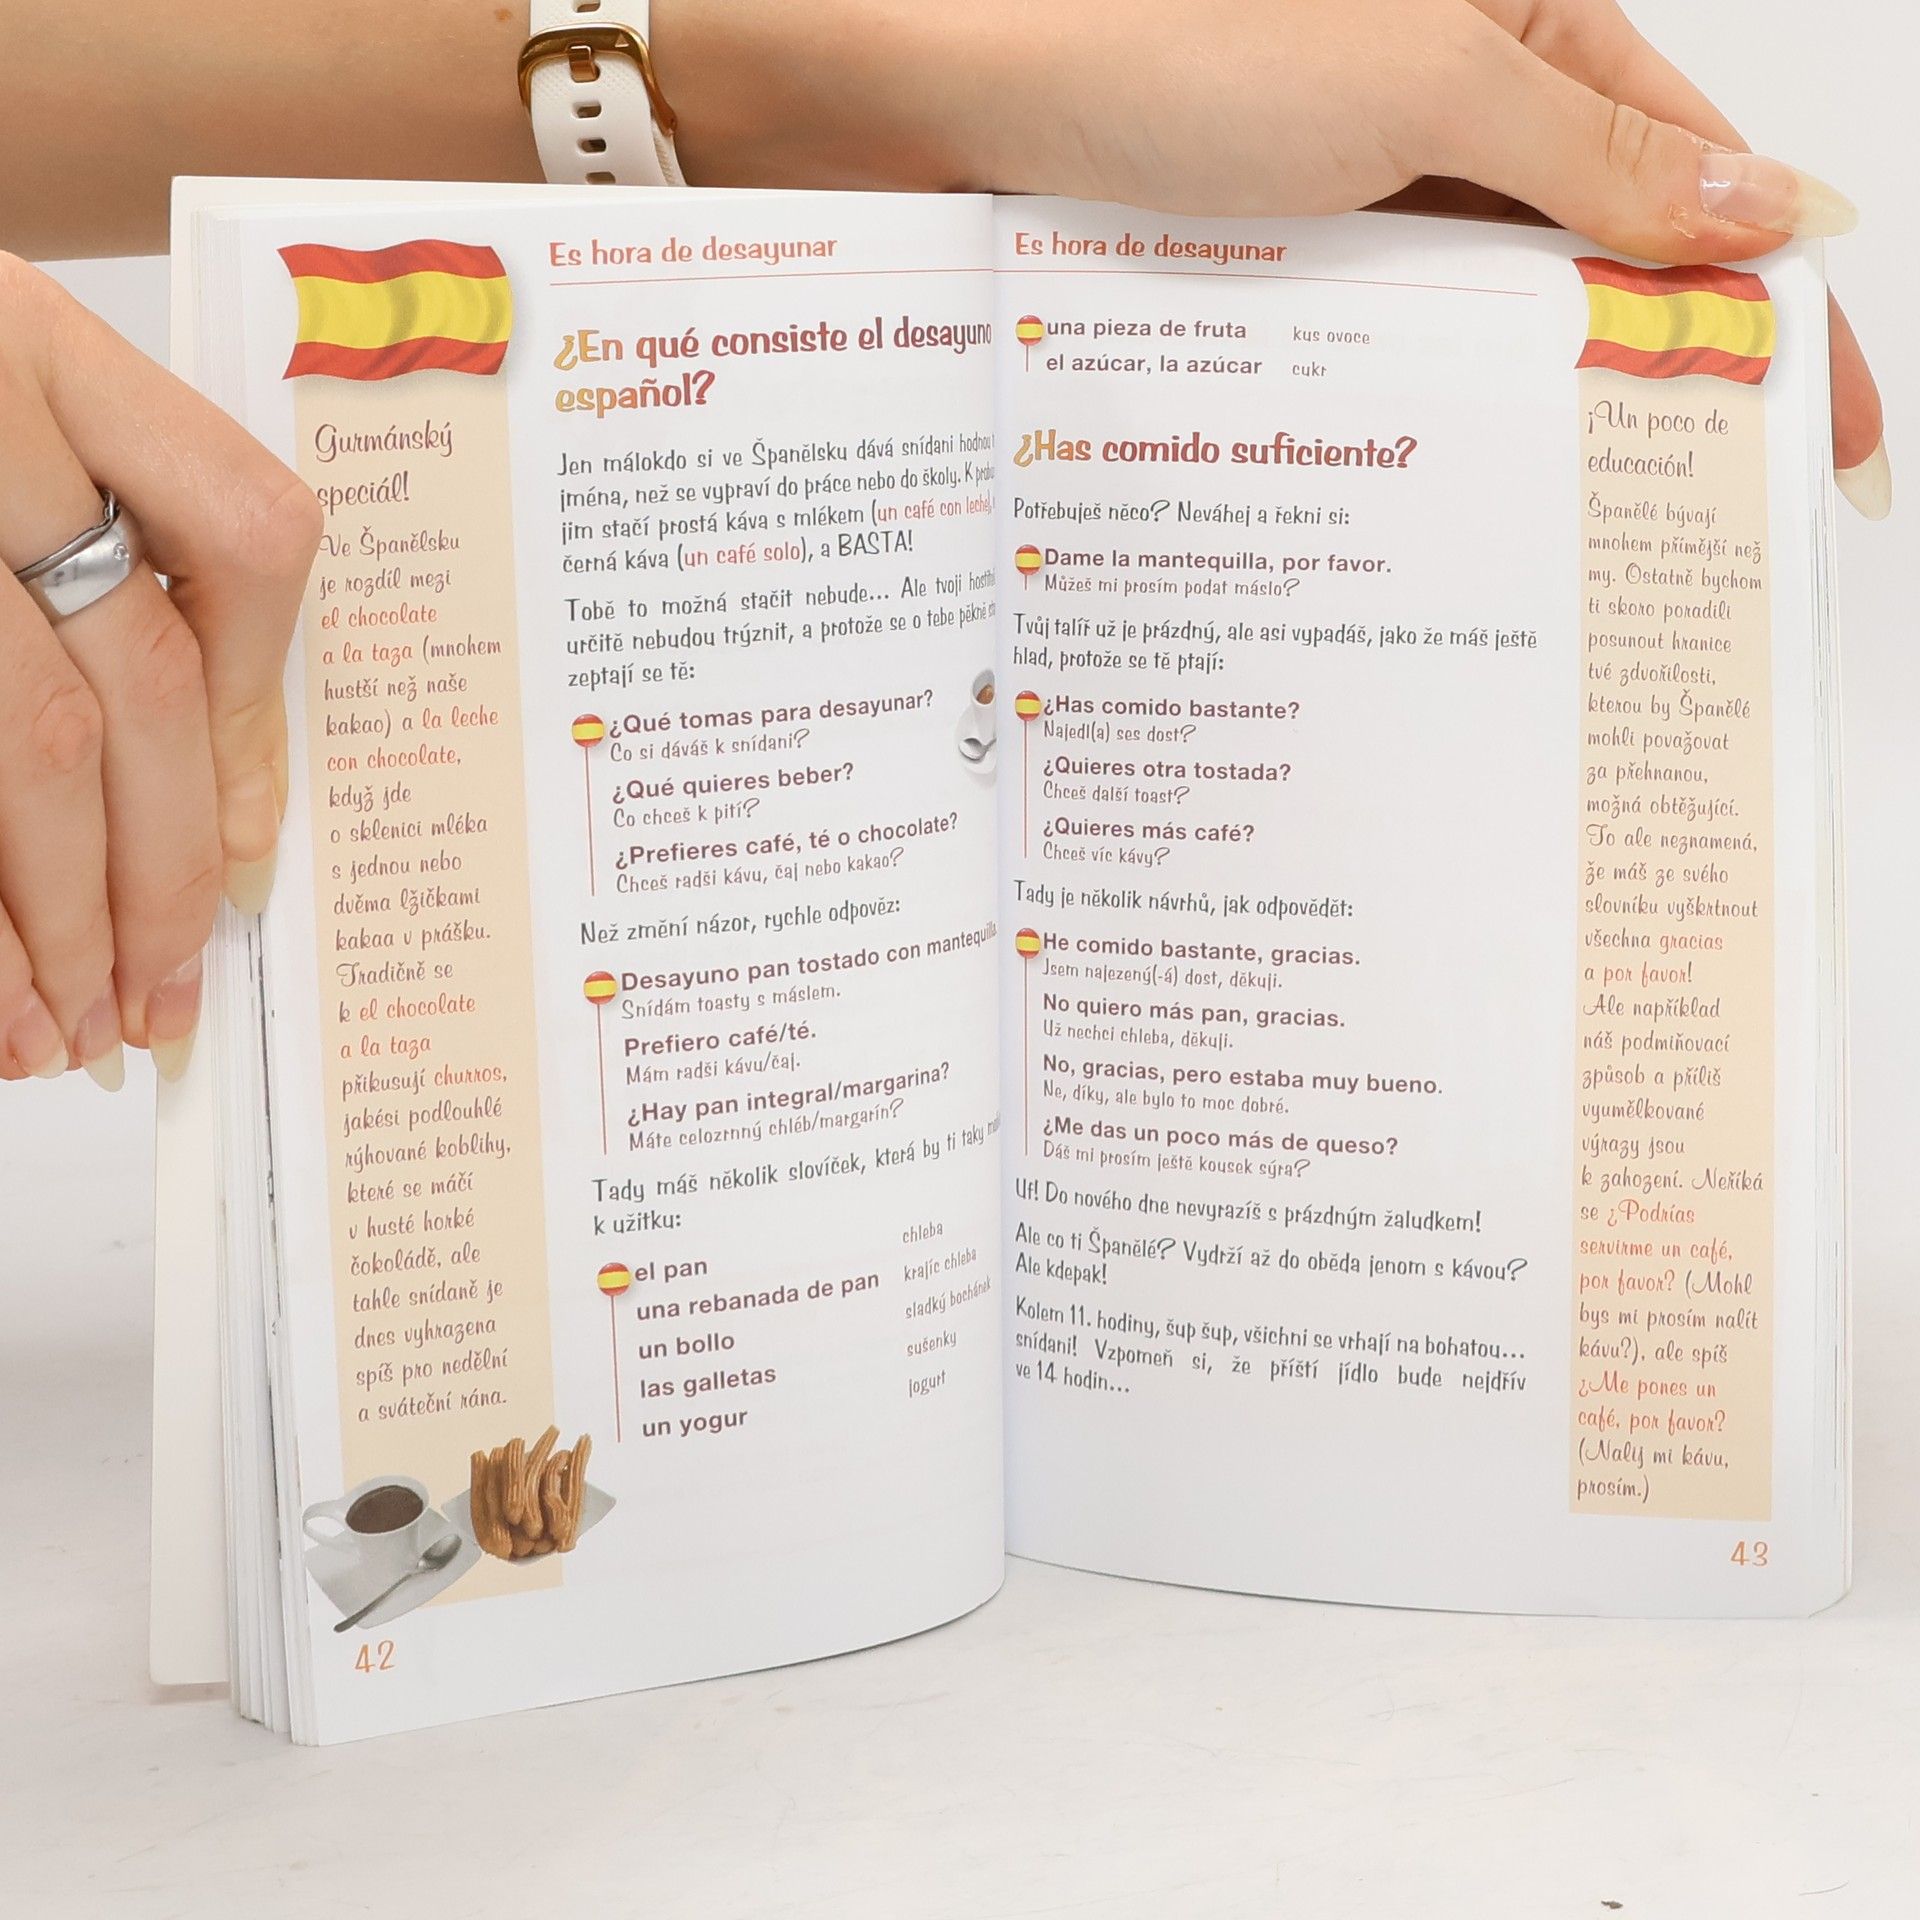 Es hora de desayunar
Gurmánský
speciál!
Ve Španělsku
je rozdíl mezi
el chocolate
a la taza (mnohem
hustší než naše
kakao) a la leche
con chocolate,
když jde
o sklenici mléka
s jednou nebo
dvěma lžičkami
kakaa v prášku.
Tradičně se
k el chocolate
a la taza
přikusují churros,
jakési podlouhlé
rýhované koblihy,
které se máčí
v husté horké
čokoládě, ale
tahle snídaně je
dnes vyhrazena
spíš pro nedělní
a sváteční rána.
¿En qué consiste el desayuno
español?
Jen málokdo si ve Španělsku dává snídani hodnou
jména, než se vypraví do práce nebo do školy. K
jim stačí prostá káva s mlékem (un café con leche),
černá káva (un café solo), a BASTA!
Tobě to možná stačit nebude... Ale tvoji
určitě nebudou trýznit, a protože se o tebe pěkně
zeptají se tě:
¿Qué tomas para desayunar?
Co si dáváš k snídani?
¿Qué quieres beber?
Co chceš k pití?
¿Prefieres café, té o chocolate?
Chceš radši kávu, čaj nebo kakao?
Než změní názor, rychle odpověz:
Desayuno pan tostado con mantequilla
Snídám toasty s máslem.
Prefiero café/té.
Mám radši kávu/čaj.
¿Hay pan integral/margarina?
Máte celozrnný chléb/margarín?
Tady máš několik slovíček, která by ti taky
k užitku:
el pan chleba
una rebanada de pan krajíc chleba
un bollo sladký bochánek
las galletas sušenky
un yogur jogurt
42
Es hora de desayunar
una pieza de fruta kus ovoce
el azúcar, la azúcar cukr
¿Has comido suficiente?
Potřebuješ něco? Neváhej a řekni si:
Dame la mantequilla, por favor.
Můžeš mi prosím podat máslo?
Tvůj talíř už je prázdný, ale asi vypadáš, jako že máš ještě
hlad, protože se tě ptají:
¿Has comido bastante?
Najedl(a) ses dost?
¿Quieres otra tostada?
Chceš další toast?
¿Quieres más café?
Chceš víc kávy?
Tady je několik návrhů, jak odpovědět:
He comido bastante, gracias.
Jsem najezený(-á) dost, děkuji.
No quiero más pan, gracias.
Už nechci chleba, děkuji.
No, gracias, pero estaba muy bueno.
Ne, díky, ale bylo to moc dobré.
¿Me das un poco más de queso?
Dáš mi prosím ještě kousek sýra?
Uf! Do nového dne nevyrazíš s prázdným žaludkem!
Ale co ti Španělé? Vydrží až do oběda jenom s kávou?
Ale kdepak!
Kolem 11. hodiny, šup šup, všichni se vrhají na bohatou...
snídani! Vzpomeň si, že příští jídlo bude nejdřív
ve 14 hodin...
¡Un poco de
educación!
Španělé bývají
mnohem přímější než
my. Ostatně bychom
ti skoro poradili
posunout hranice
tvé zdvořilosti,
kterou by Španělé
mohli považovat
za přehnanou,
možná obtěžující.
To ale neznamená,
že máš ze svého
slovníku vyškrtnout
všechna gracias
a por favor!
Ale například
náš podmiňovací
způsob a příliš
vyumělkované
výrazy jsou
k zahození. Neříká
se ¿Podrías
servirme un café,
por favor? (Mohl
bys mi prosím nalít
kávu?), ale spíš
¿Me pones un
café, por favor?
(Nalij mi kávu,
prosím.)
43